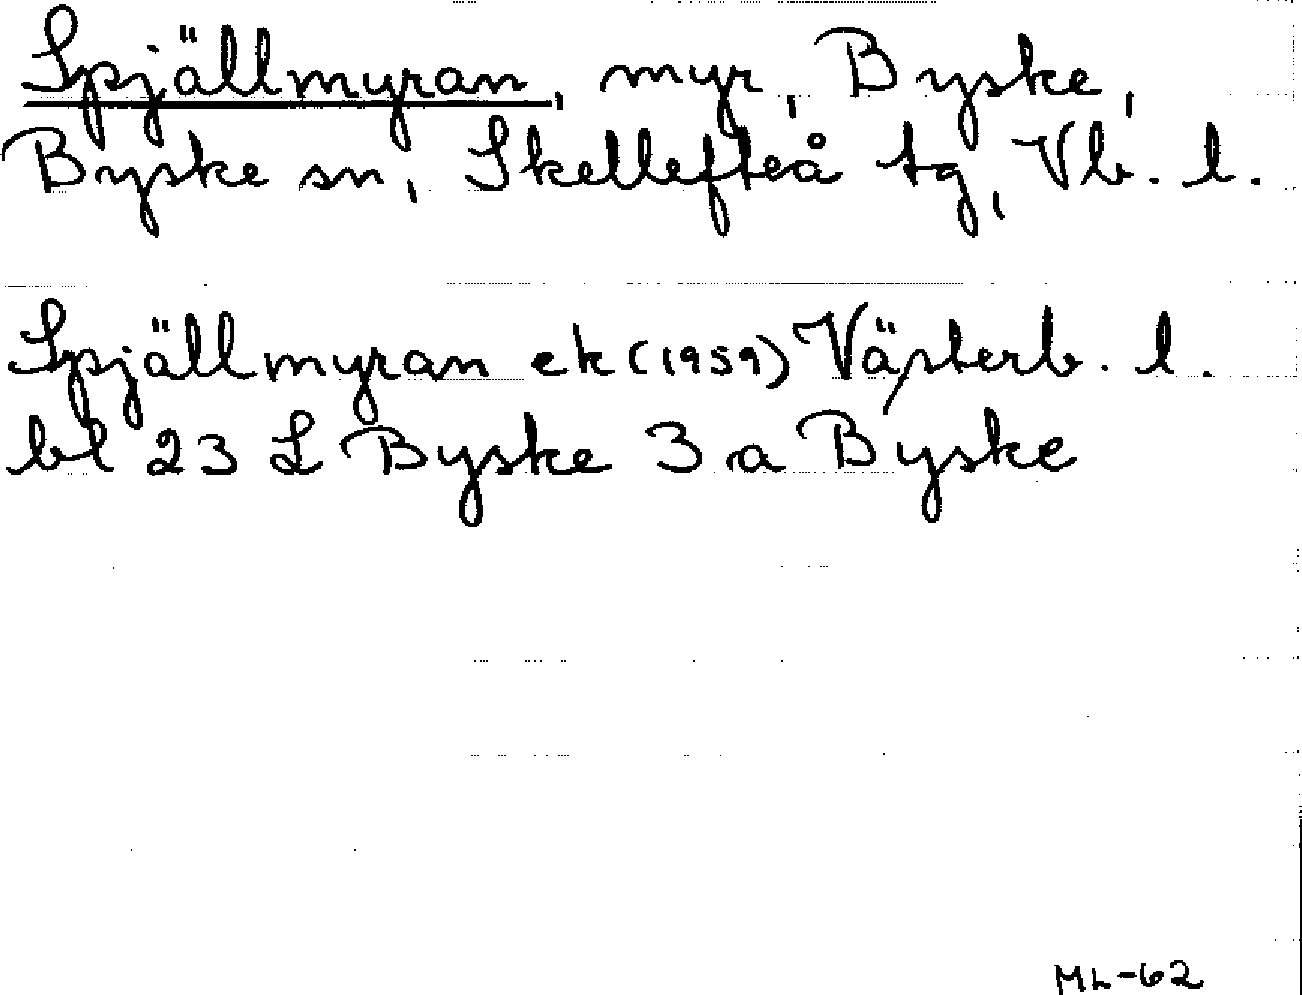 Spjällmyran, myr, Byske,
Byske sn, Skellefteå tg, Vb. l.
Spjällmyran ek (1959) Västerb. l.
bl 23 L Byske 3 a Byske
ML-62